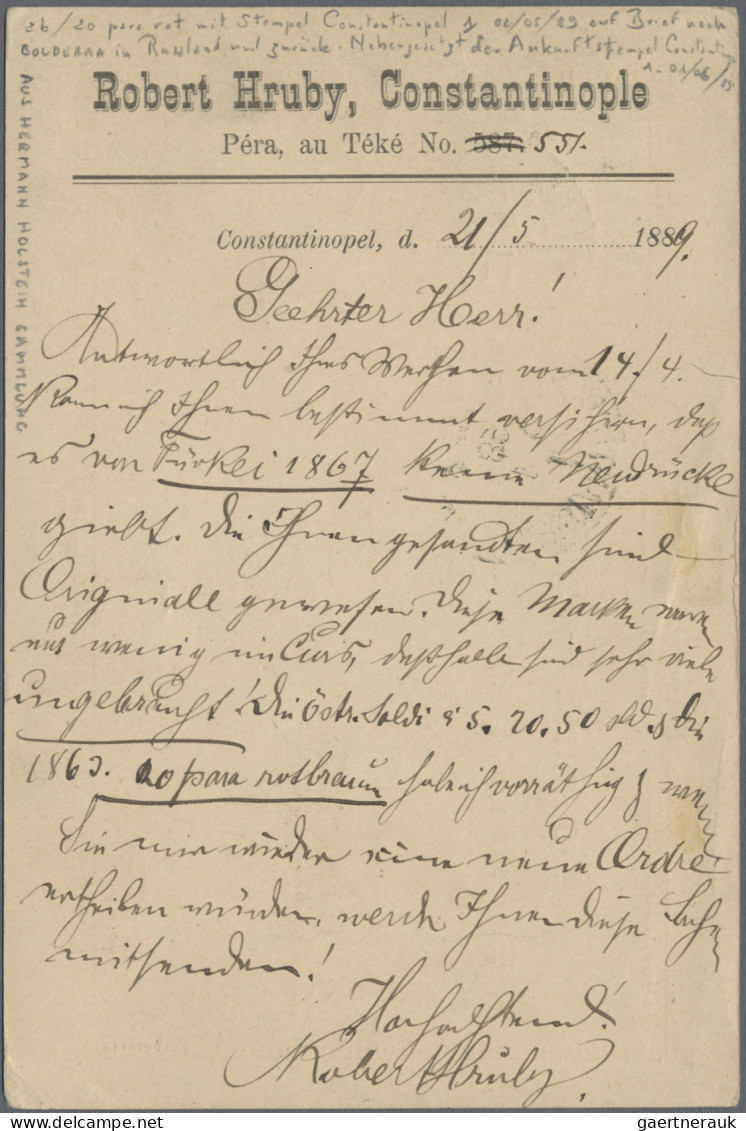 26/20 para rot mit Stempel Constantinopel 1 02/05/89 auf Brief nach
BOLDERAA in Russland und zurück. Nebengesetzt der Ankunftstempel Constantinop
1. 01/06/
AUS HERMANN HOLSTEIN SAMMLUNG
Robert Hruby, Constantinople
Péra, au Téké No. 587. 551.
Constantinopel, d. 21/5 1889.
Geehrter Herr!
Antwortlich Ihres Werthen vom 14/4.
kann ich Ihnen bestimmt versichern, daß
es von Türkei 1867 keine Neudrücke
giebt. Die Ihnen gesandten sind
Originall gewesen. Diese Marken waren
nur wenig im Curs, deßhalb sind sehr viele
ungebraucht! Die östr. Soldi à 5. 20. 50 die
1863. 20 para rotbraun habe ich vorräthig & wenn
Sie mir wieder eine neue Ordre
ertheilen würden, werde Ihnen diese Sachen
mitsenden!
Hochachtend!
Robert Hruby.
gaertnerauk
www.delcampe.net